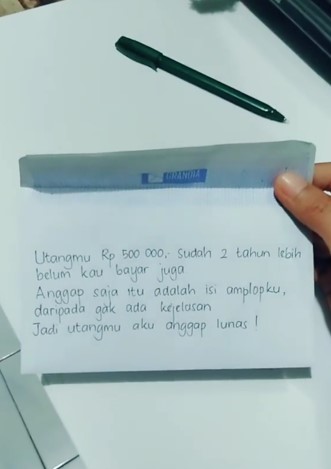 Utangmu Rp 500 000,- sudah 2 tahun lebih
belum kau bayar juga
Anggap saja itu adalah isi amplopku,
daripada gak ada kejelasan
Jadi utangmu aku anggap lunas !